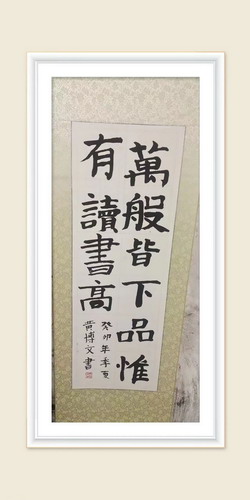 萬般皆下品惟
有讀書高
癸卯年季夏
黄博文書